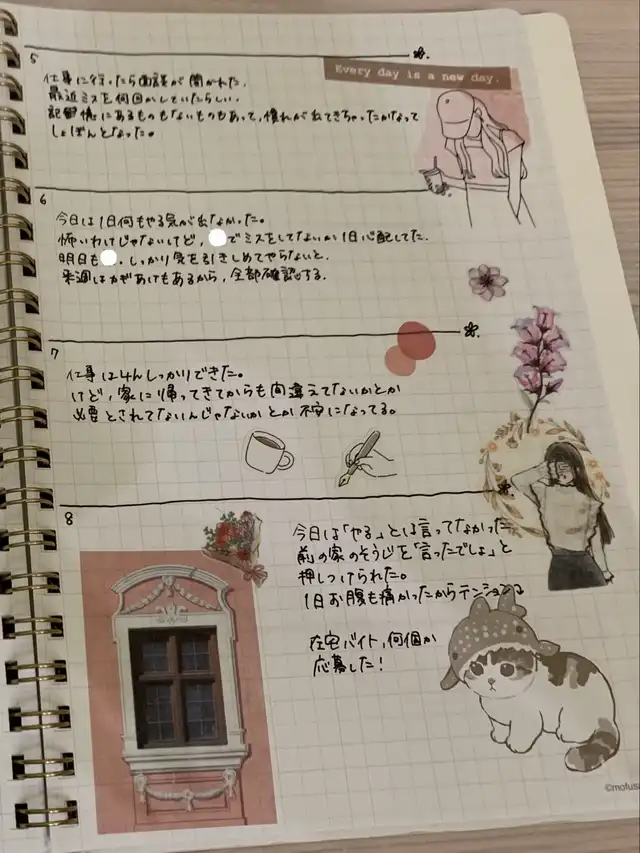 5
Every day is a new day.
仕事に行ったら面談が開かれた。
最近ミスを何回かしていたらしい。
記憶にあるものもないものもあって、慣れが出てきちゃったかなって
しょぼんとなった。
6
今日は1日何もやる気が出なかった。
怖いわけじゃないけど、 でミスをしてないか1日心配してた。
明日も 、しっかり気を引きしめてやらないと。
来週はかぎあけもあるから、全部確認する。
7
仕事はしっかりできた。
けど、家に帰ってきてからも間違えてないかとか
必要とされてないんじゃないかとか不安になってる。
8
今日は「やる」とは言ってなかった
前の家のそうじを「言ったでしょ」と
押しつけられた。
1日お腹も痛かったからテンション↓
在宅バイト、何個か
応募した!
©mofus